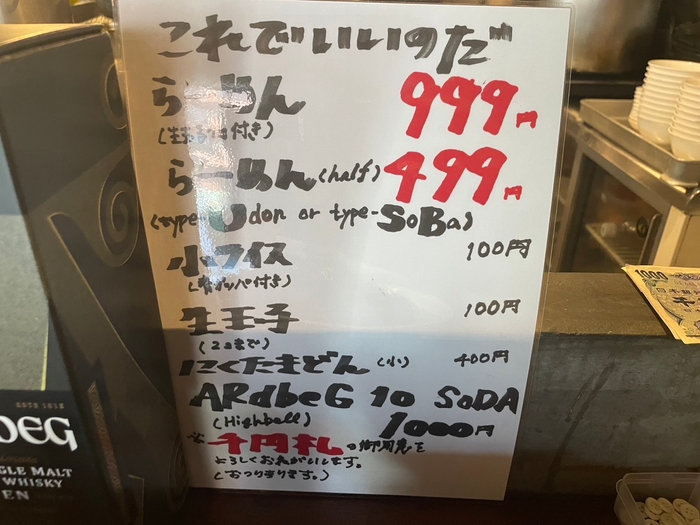 これでいいのだ
らーめん 999円
(生玉子付き)
らーめん(half) 499円
(type-Udon or type-SoBa)
小ライス 100円
(青カッパ付き)
生玉子 100円
(2コまで)
にくたまどん(小) 400円
ARdbeG 10 SoDA
(Highball) 1000円
※千円札の御用意を
よろしくおねがいします。
(おつりあります。)
ESTD 1815
BEG
GLE MALT
WHISKY
EN
1000